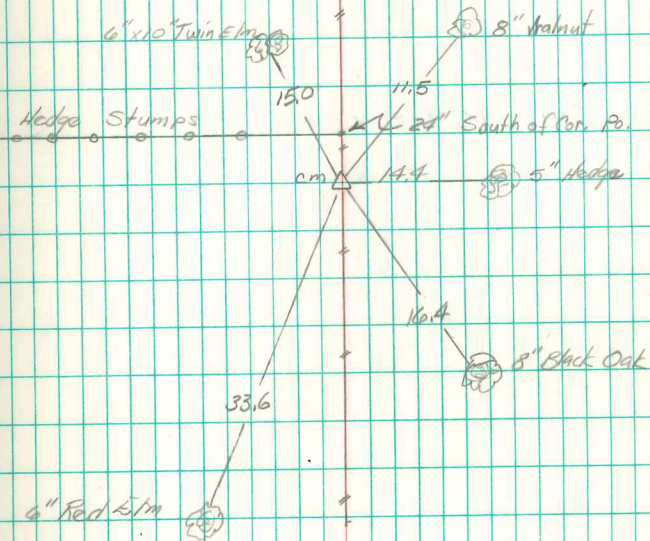 6"x10" Twin Elm
8" Walnut
15.0
11.5
Hedge Stumps
24" South of Cor. Po.
cm
14.4
5" Hedge
16.4
8" Black Oak
33.6
6" Red Elm